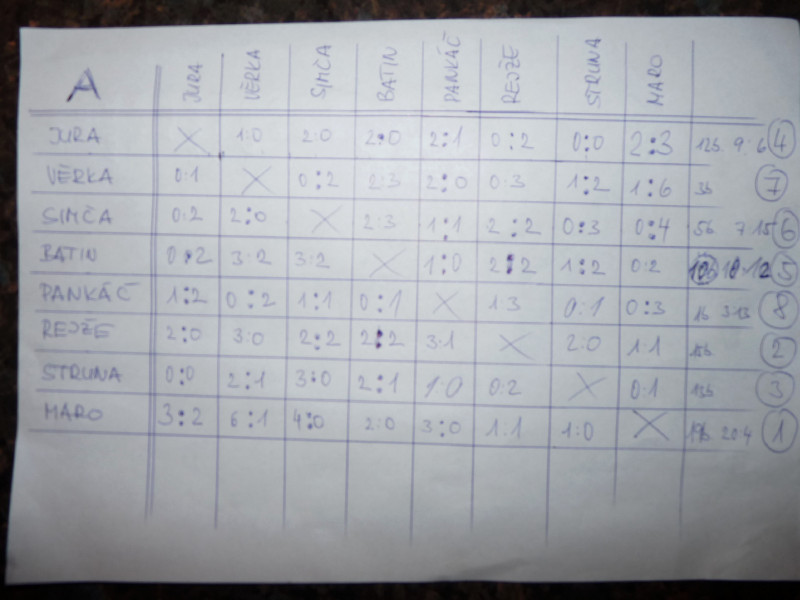 A JURA VĚRKA SIMČA BATIN PANKÁČ REJŽE STRUNA MARO
JURA X 1:0 2:0 2:0 2:1 0:2 0:0 2:3 12b. 9:6 4
VĚRKA 0:1 X 0:2 2:3 2:0 0:3 1:2 1:6 3b 7
SIMČA 0:2 2:0 X 2:3 1:1 2:2 0:3 0:4 5b 7:15 6
BATIN 0:2 3:2 3:2 X 1:0 2:2 1:2 0:2 10b 10:12 5
PANKÁČ 1:2 0:2 1:1 0:1 X 1:3 0:1 0:3 1b 3:13 8
REJŽE 2:0 3:0 2:2 2:2 3:1 X 2:0 1:1 15b 2
STRUNA 0:0 2:1 3:0 2:1 1:0 0:2 X 0:1 13b 3
MARO 3:2 6:1 4:0 2:0 3:0 1:1 1:0 X 19b 20:4 1